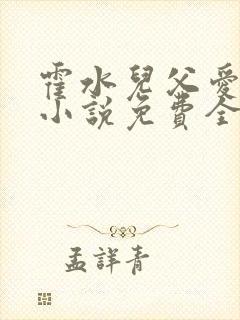 霍水兒父愛
小說免費全
孟詳青